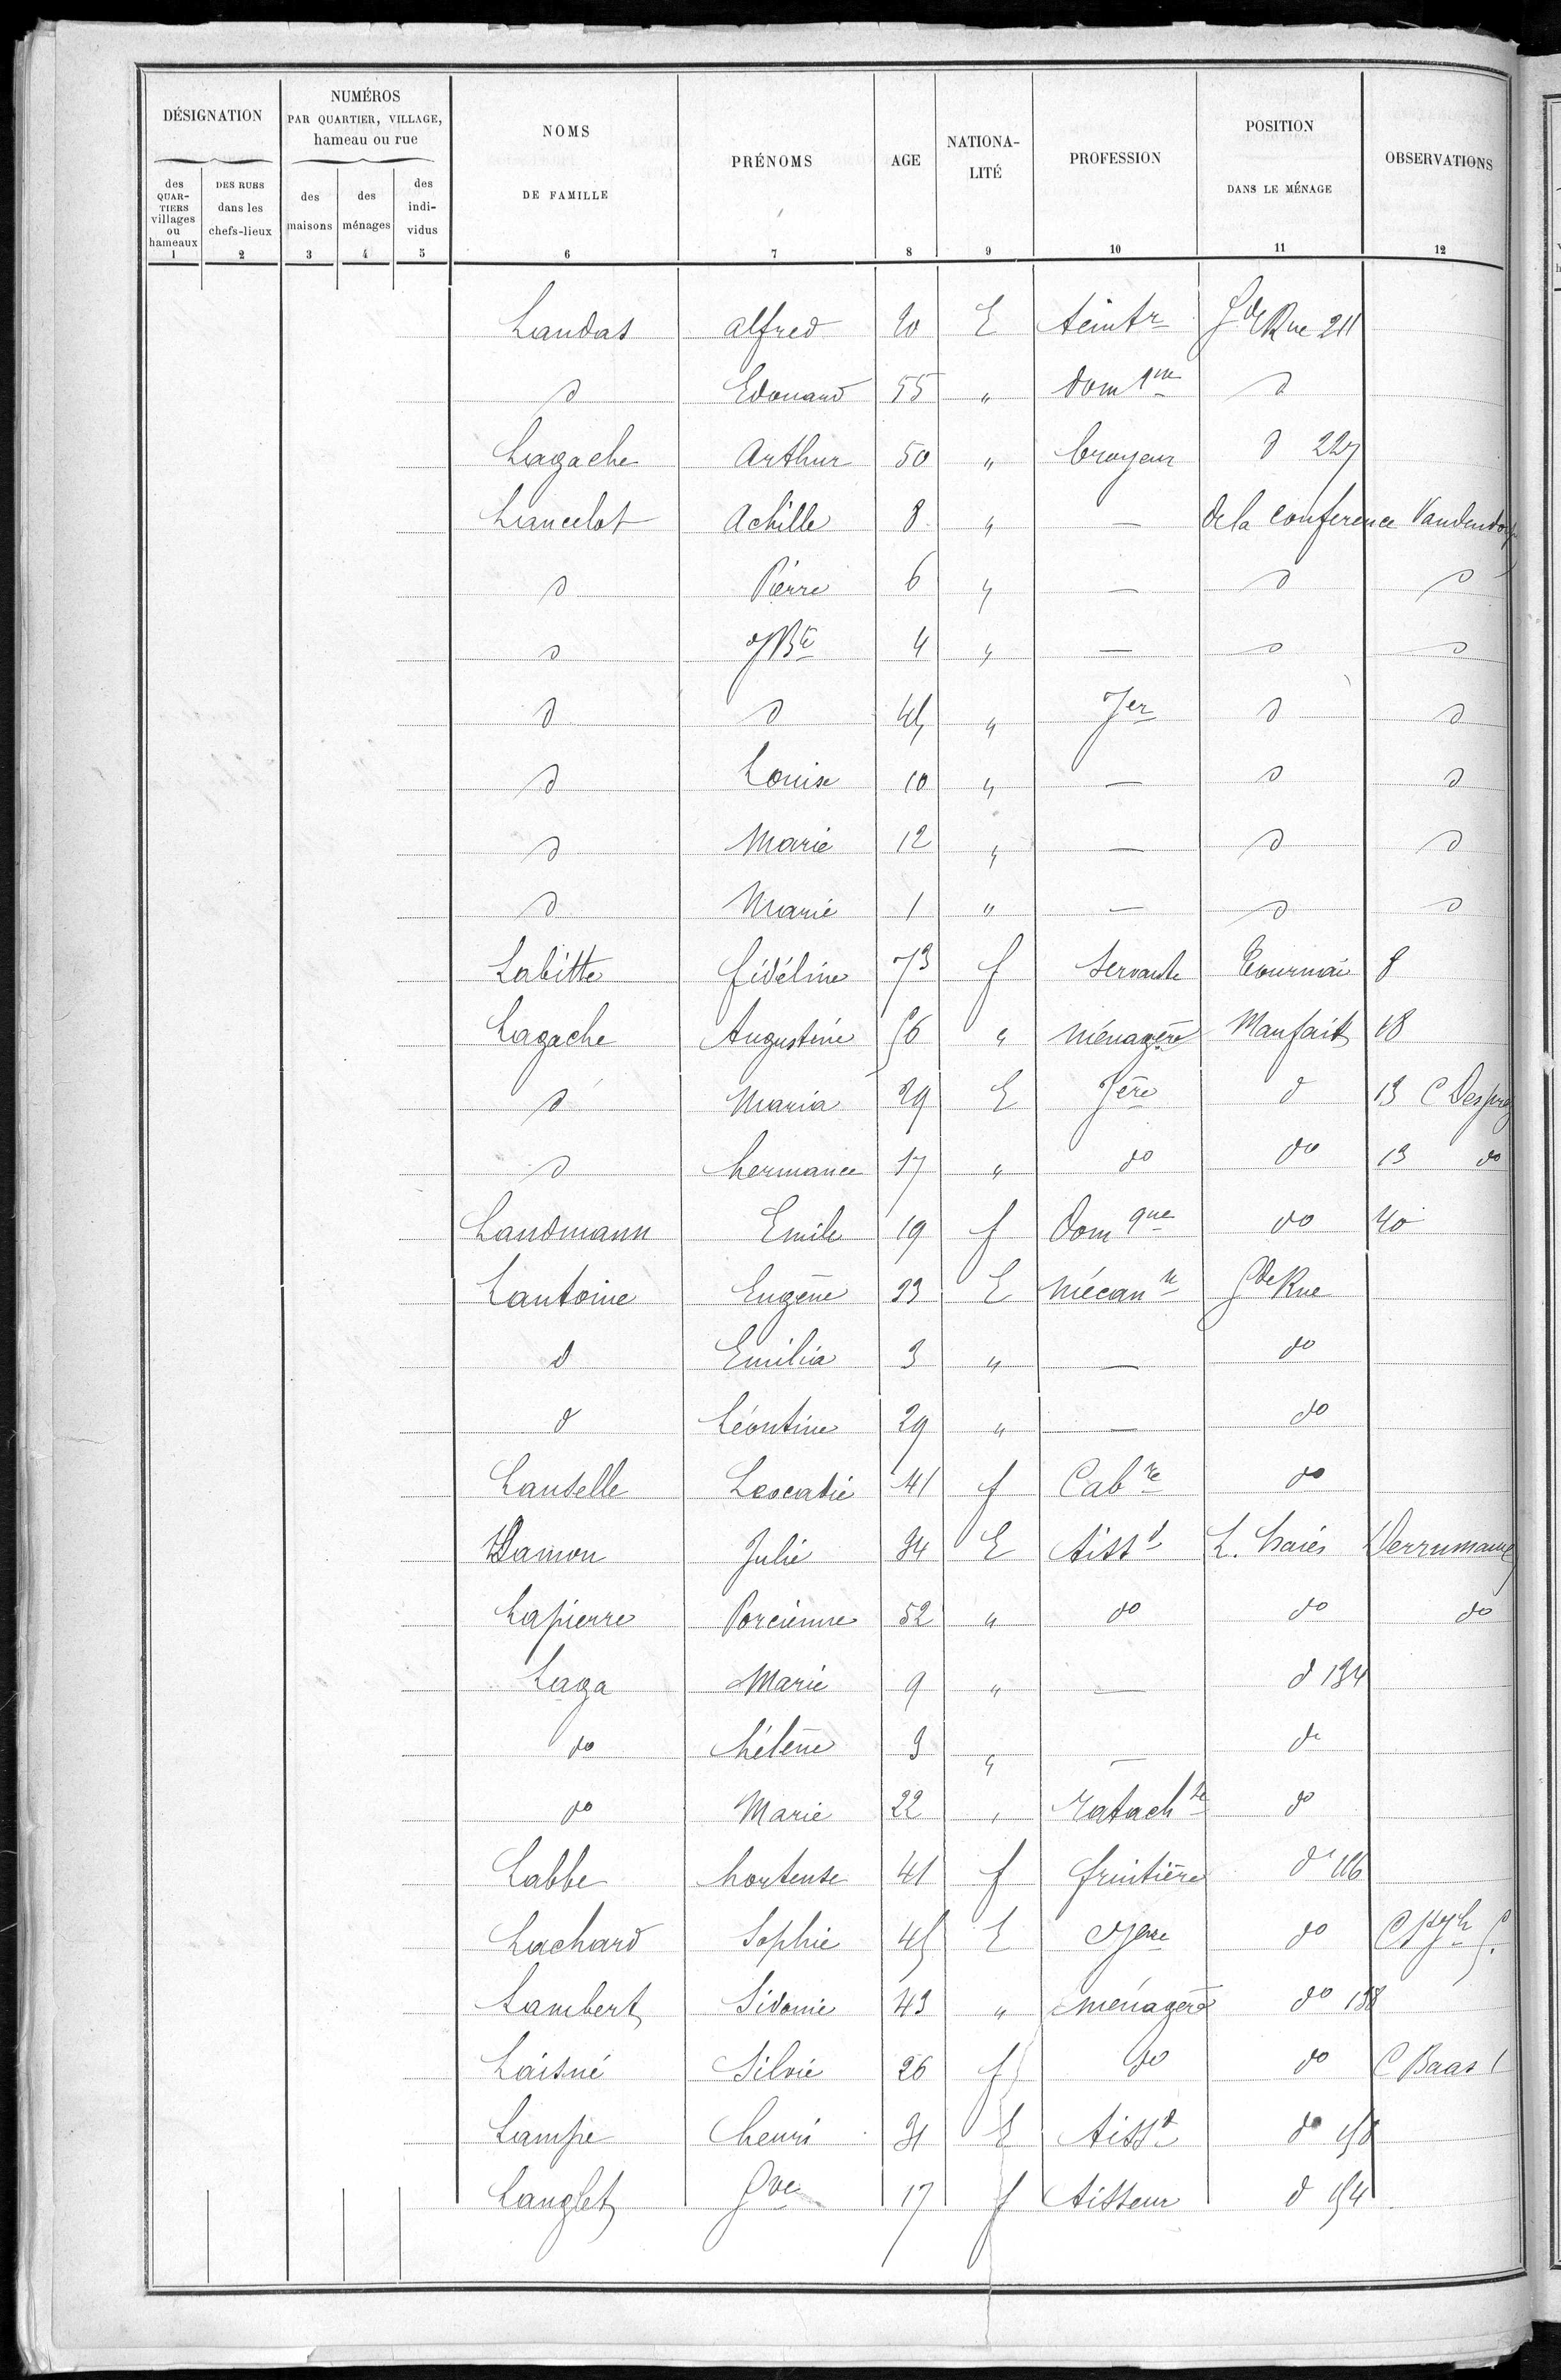 DÉSIGNATION | NUMÉROS PAR QUARTIER, VILLAGE, hameau ou rue | NOMS DE FAMILLE | PRÉNOMS | AGE | NATIONA-LITÉ | PROFESSION | POSITION DANS LE MÉNAGE | OBSERVATIONS
des QUAR-TIERS villages ou hameaux | DES RUES dans les chefs-lieux | des maisons | des ménages | des indi-vidus
1 | 2 | 3 | 4 | 5 | 6 | 7 | 8 | 9 | 10 | 11 | 12
Landas | alfred | 20 | E | teintr | Gde Rue 211
d | Edouard | 55 | " | | d
Lagache | Arthur | 50 | " | broyeur | d 227
Lancelot | Achille | 8 | " | — | de la conference Vandendorp
d | Pierre | 6 | " | — | d | d
d | JBte | 4 | " | — | d | d
d | d | 45 | " | Jer | d | d
d | Louise | 10 | " | — | d | d
d | Marie | 12 | " | — | d | d
d | Marie | 1 | " | — | d | d
Labitte | fidéline | 73 | f | Servante | Tournai | 8
Lagache | Augustine | 56 | " | ménagère | Manfait | 18
d | Maria | 29 | E | Jère | d | 13 C Desprez
d | hermance | 17 | " | do | do | 13 do
Landmann | Emile | 19 | f | Dom que | do | 40
Lantoine | Eugène | 33 | E | mécan n | Gde Rue
d | Emilia | 3 | " | — | do
d | Léontine | 29 | " | — | do
Lanselle | Leocadie | 41 | f | Cab re | do
Lamon | Julie | 34 | E | tiss d | L. haies | Verrumaux
Lapierre | Porcienne | 52 | " | do | do | do
Laga | Marie | 9 | " | — | d 134
do | hélène | 3 | " | — | do
do | Marie | 22 | " | ratach | do
Labbe | hortense | 41 | f | fruitière | d 116
Lachard | Sophie | 45 | E | Jere | do
Lambert | Sidonie | 43 | " | ménagère | do 138
Laisné | Silvie | 26 | f | do | do | C Baas 1
Lampe | henri | 31 | E | tiss d | do 158
Langlet | Gve | 17 | f | tisseur | d 154